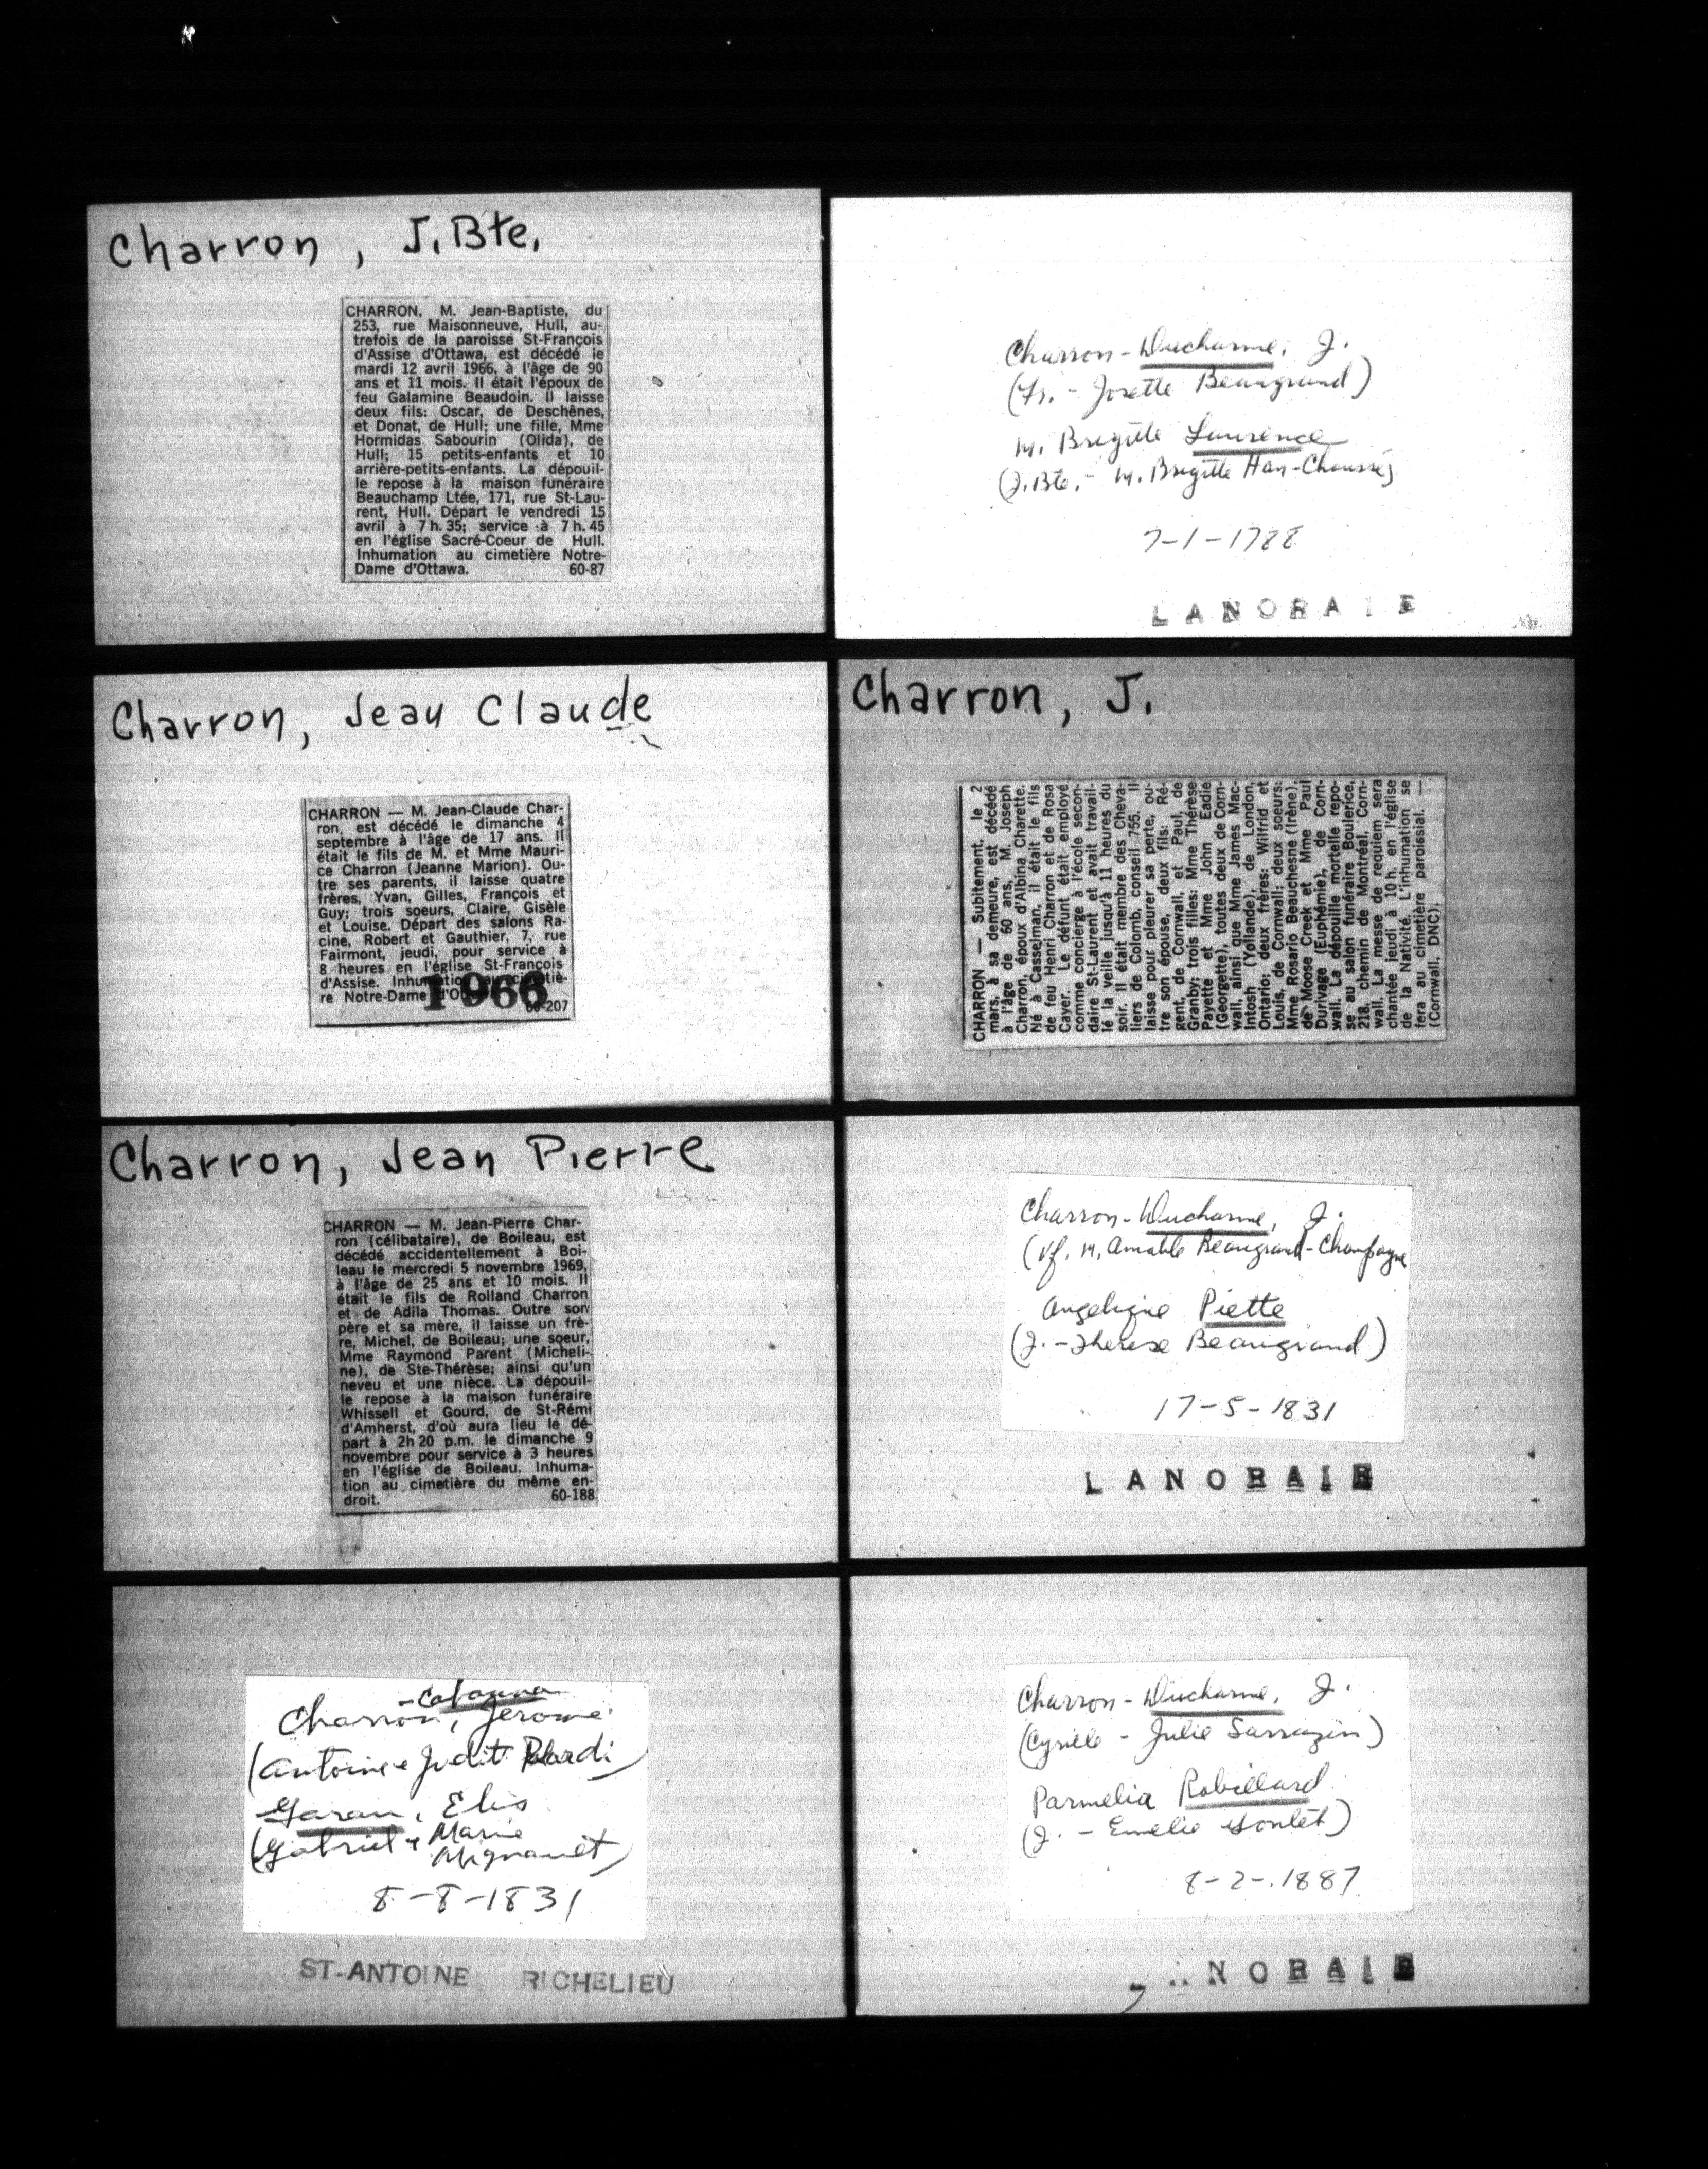 Charron, J. Bte.
CHARRON, M. Jean-Baptiste, du
253, rue Maisonneuve, Hull, au-
trefois de la paroisse St-François
d'Assise d'Ottawa, est décédé le
mardi 12 avril 1966, à l'âge de 90
ans et 11 mois. Il était l'époux de
feu Galamine Beaudoin. Il laisse
deux fils: Oscar, de Deschênes,
et Donat, de Hull; une fille, Mme
Hormidas Sabourin (Olida), de
Hull; 15 petits-enfants et 10
arrière-petits-enfants. La dépouil-
le repose à la maison funéraire
Beauchamp Ltée, 171, rue St-Lau-
rent, Hull. Départ le vendredi 15
avril à 7 h. 35; service à 7 h. 45
en l'église Sacré-Coeur de Hull.
Inhumation au cimetière Notre-
Dame d'Ottawa. 60-87
Charron, Jean Claude
CHARRON — M. Jean-Claude Char-
ron, est décédé le dimanche 4
septembre à l'âge de 17 ans. Il
était le fils de M. et Mme Mauri-
ce Charron (Jeanne Marion). Ou-
tre ses parents, il laisse quatre
frères, Yvan, Gilles, François et
Guy; trois soeurs, Claire, Gisèle
et Louise. Départ des salons Ra-
cine, Robert et Gauthier, 7, rue
Fairmont, jeudi, pour service à
8 heures en l'église St-François
d'Assise. Inhumation au cimetiè-
re Notre-Dame
1966
Charron, Jean Pierre
CHARRON — M. Jean-Pierre Char-
ron (célibataire), de Boileau, est
décédé accidentellement à Boi-
leau le mercredi 5 novembre 1969,
à l'âge de 25 ans et 10 mois. Il
était le fils de Rolland Charron
et de Adila Thomas. Outre son
père et sa mère, il laisse un frè-
re, Michel, de Boileau; une soeur,
Mme Raymond Parent (Micheli-
ne), de Ste-Thérèse; ainsi qu'un
neveu et une nièce. La dépouil-
le repose à la maison funéraire
Whissell et Gourd, de St-Rémi
d'Amherst, d'où aura lieu le dé-
part à 2h 20 p.m. le dimanche 9
novembre pour service à 3 heures
en l'église de Boileau. Inhuma-
tion au cimetière du même en-
droit. 60-188
Charron, Jerome
(Antoine & Judit
Garau, Elis
(Gabriel & Marie
Mignault)
8-8-1831
ST-ANTOINE RICHELIEU
Charron-Ducharme, J.
(Frs. - Josette Beaugrand)
M. Brigitte Laurence
(J. Bte. - M. Brigitte Han-Chaussé)
7-1-1788
LANORAIE
Charron, J.
CHARRON — Subitement, le 2
mars, à sa demeure, est décédé
à l'âge de 60 ans, M. Joseph
Charron, époux d'Albina Charette.
Né à Casselman, il était le fils
de feu Henri Charron et de Rosa
Cayer. Le défunt était employé
comme concierge à l'école secon-
daire St-Laurent et avait travail-
lé la veille jusqu'à 11 heures du
soir. Il était membre des Cheva-
liers de Colomb, conseil 755. Il
laisse pour pleurer sa perte, ou-
tre son épouse, deux fils: Ré-
gent, de Cornwall, et Paul, de
Granby; trois filles: Mme Thérèse
Payette et Mme John Eadie
(Georgette), toutes deux de Corn-
wall, ainsi que Mme James Mac-
Intosh (Yollande), de London,
Ontario; deux frères: Wilfrid et
Louis, de Cornwall; deux soeurs:
Mme Rosario Beauchesne (Irène),
de Moose Creek et Mme Paul
Durivage (Euphémie), de Corn-
wall. La dépouille mortelle repo-
se au salon funéraire Boulerice,
218, chemin de Montréal, Corn-
wall. La messe de requiem sera
chantée jeudi à 10 h. en l'église
de la Nativité. L'inhumation se
fera au cimetière paroissial. —
(Cornwall, DNC).
Charron-Ducharme, J.
(Vf. M. Amable Beaugrand-Champagne
Angelique Piette
(J. - Therese Beaugrand)
17-5-1831
LANORAIE
Charron-Ducharme, J.
(Cyrille - Julie Sarrazin)
Parmelia Robillard
(J. - Emelie Houlet)
8-2-1887
ANORAIE